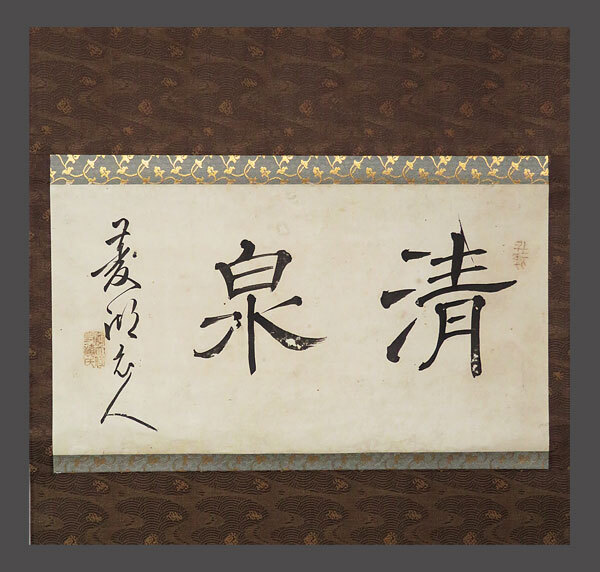 清泉
菱湖老人